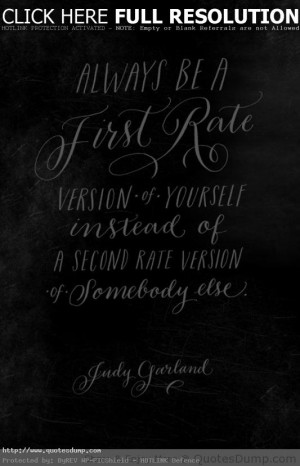 CLICK HERE FULL RESOLUTION
HOTLINK PROTECTION ACTIVATED - NOTE: Empty or Blank Referrals are not Allowed
ALWAYS BE A
First Rate
VERSION · of · YOURSELF
instead of
A SECOND RATE VERSION
· of · Somebody else.
Judy Garland
http://www.quotesdump.com
QuotesDump.com